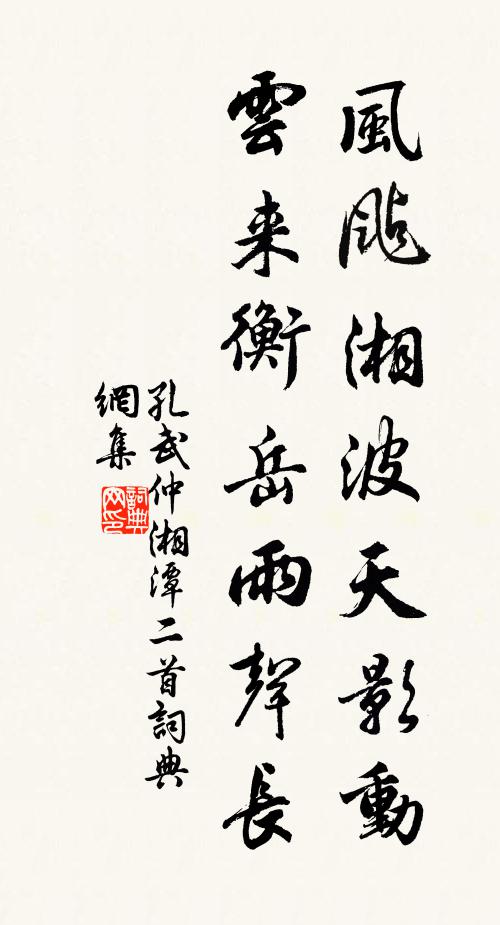 風飐湘波天影動
雲来衡岳雨聲長
孔武仲湘潭二首詞典
網集
詞典
网印